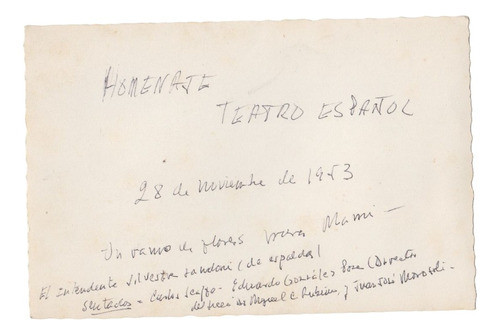 HOMENAJE
TEATRO ESPAÑOL
28 de noviembre de 1953
Un ramo de flores para Mami -
El Intendente Silvestre Landoni (de espaldas)
Sentados - Carlos Scaffo - Eduardo González Poza (Director
del Liceo Miguel C. Rubino y Juan José Morosoli -